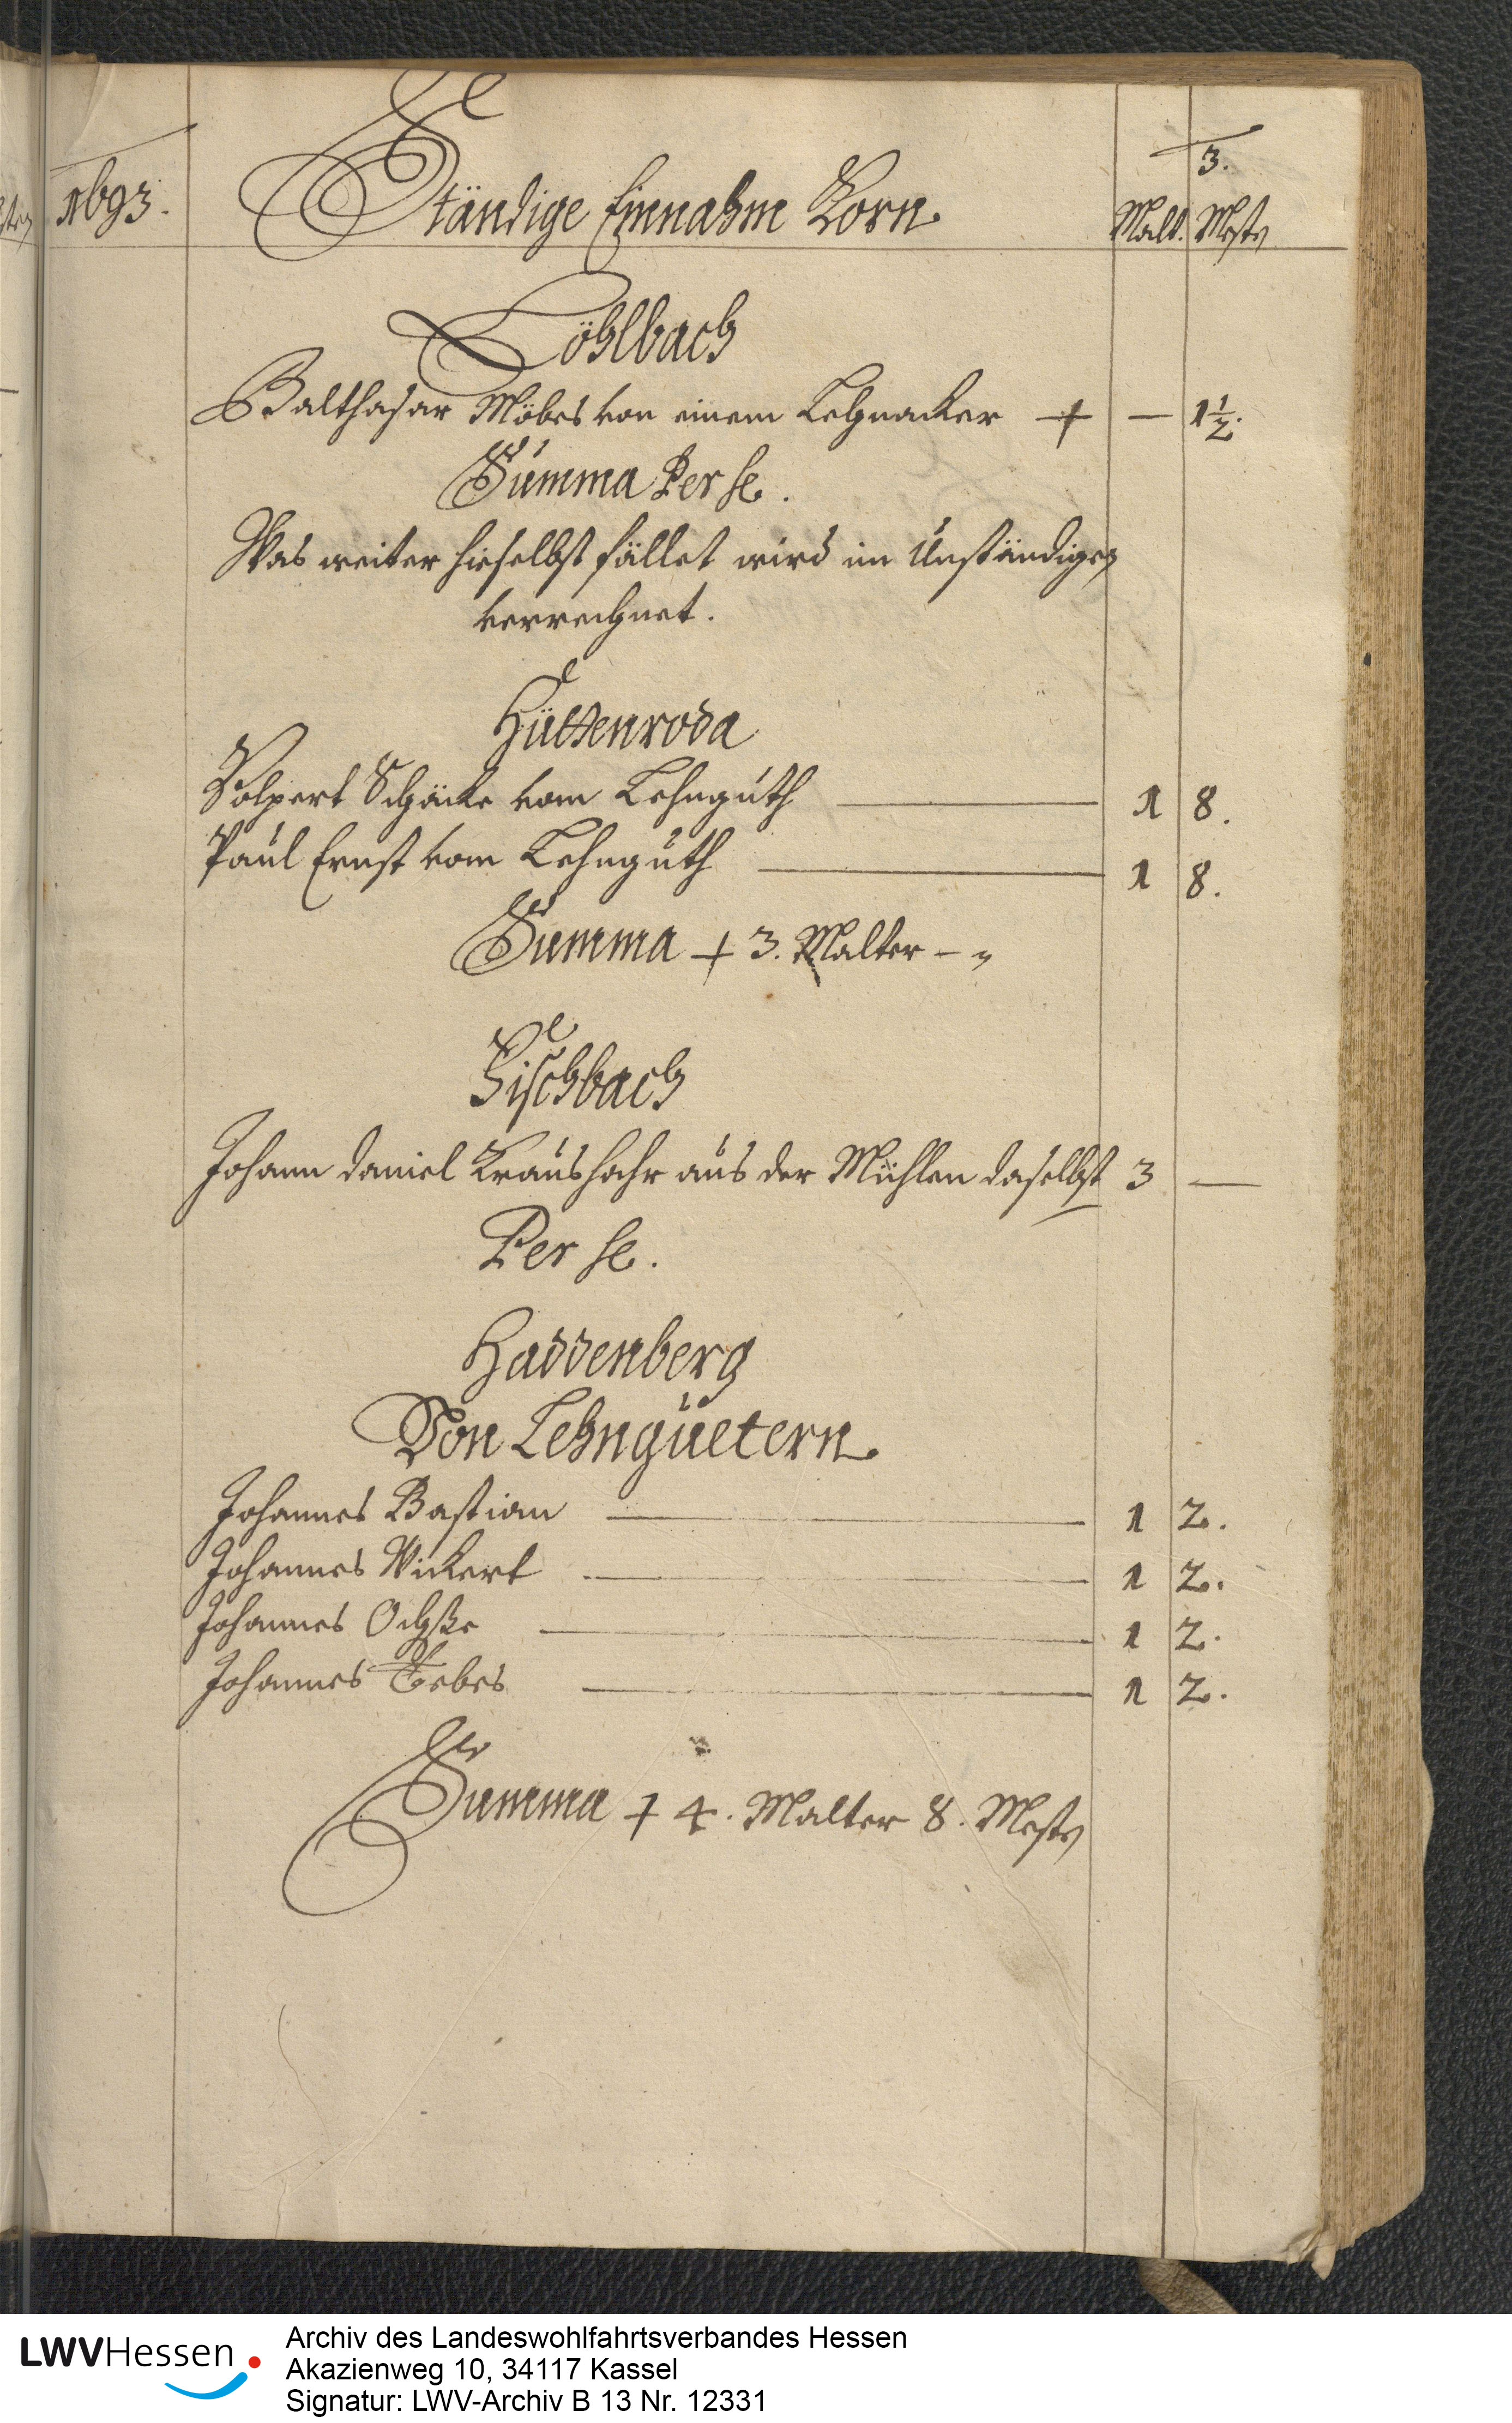 3.
1693. Ständige Einnahm Korn. Mald. Mestn
Löhlbach
Balthasar Möbes von einem Lehnacker + — 1 1/2.
Summa Per se.
Was weiter hieselbst fället wird im Unständigen
verrechnet.
Hüttenroda
Volpert Schäcke vom Lehnguth 1 8.
Paul Ernst vom Lehnguth 1 8.
Summa + 3. Malter - „
Fischbach
Johann Daniel Kraushahr aus der Mühlen daselbst 3 —
Per se.
Haddenberg
Von Lehnguetern
Johannes Bastian 1 2.
Johannes Wickert 1 2.
Johannes Ochße 1 2.
Johannes Tebes 1 2.
Summa + 4. Malter 8. Mestn
LWVHessen
Archiv des Landeswohlfahrtsverbandes Hessen
Akazienweg 10, 34117 Kassel
Signatur: LWV-Archiv B 13 Nr. 12331